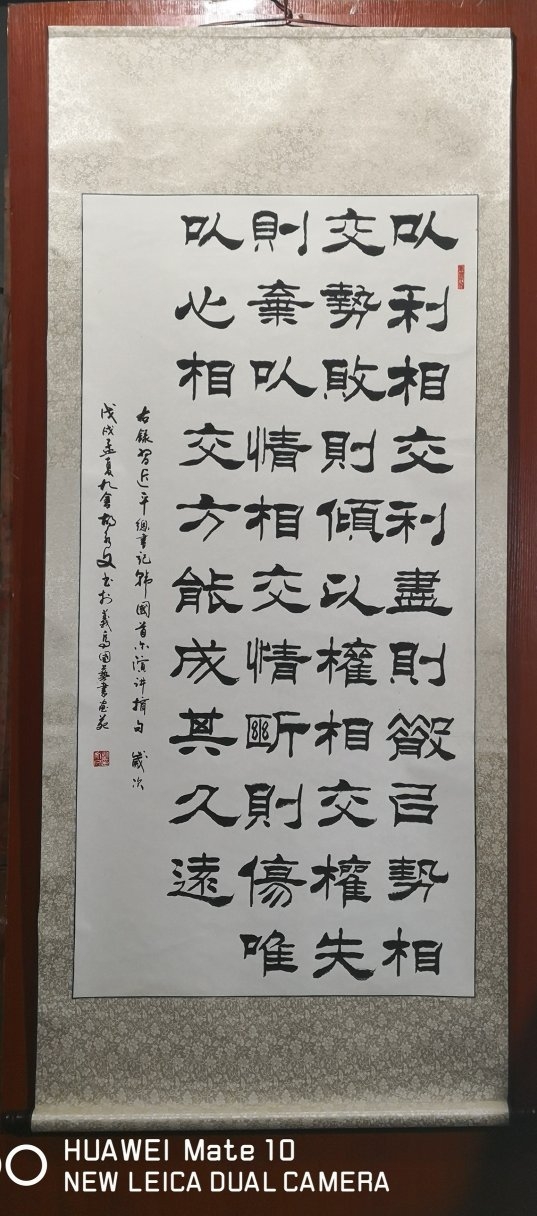 以利相交利盡則散㠯勢相
交勢敗則傾以權相交權失
則棄以情相交情斷則傷唯
以心相交方能成其久遠
右錄習近平總書記韓國首尔演讲摘句 歲次
戊戌孟夏九會楊文书於義烏國藝書畫苑
HUAWEI Mate 10
NEW LEICA DUAL CAMERA